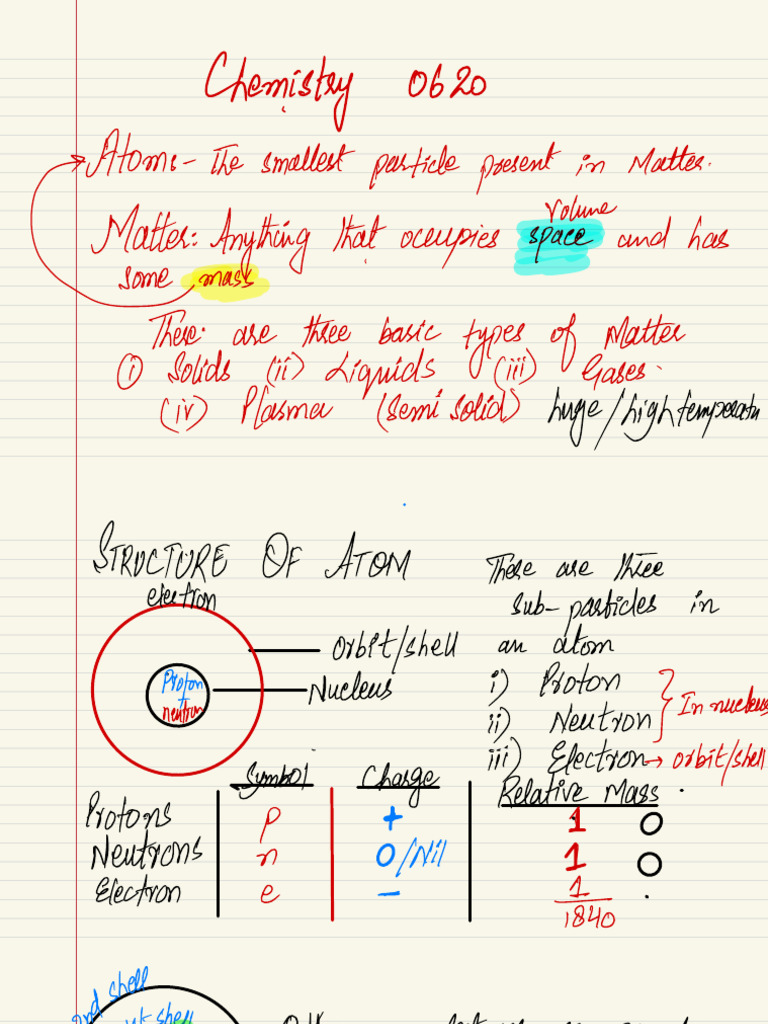 Chemistry 0620
Atom:- The smallest particle present in Matter.
volume
Matter: Anything that occupies space and has
some mass
There are three basic types of Matter
(i) Solids (ii) Liquids (iii) Gases.
(iv) Plasma (semi solid) huge/high temperatu
STRUCTURE OF ATOM
electron
Orbit/shell
Nucleus
Proton
+
neutron
There are three
sub-particles in
an atom
i) Proton
ii) Neutron
In nucleus
iii) Electron → orbit/shell
Symbol Charge Relative Mass
Protons p + 1 O
Neutrons n 0/Nil 1 O
Electron e - 1/1840 .
2nd shell
shell